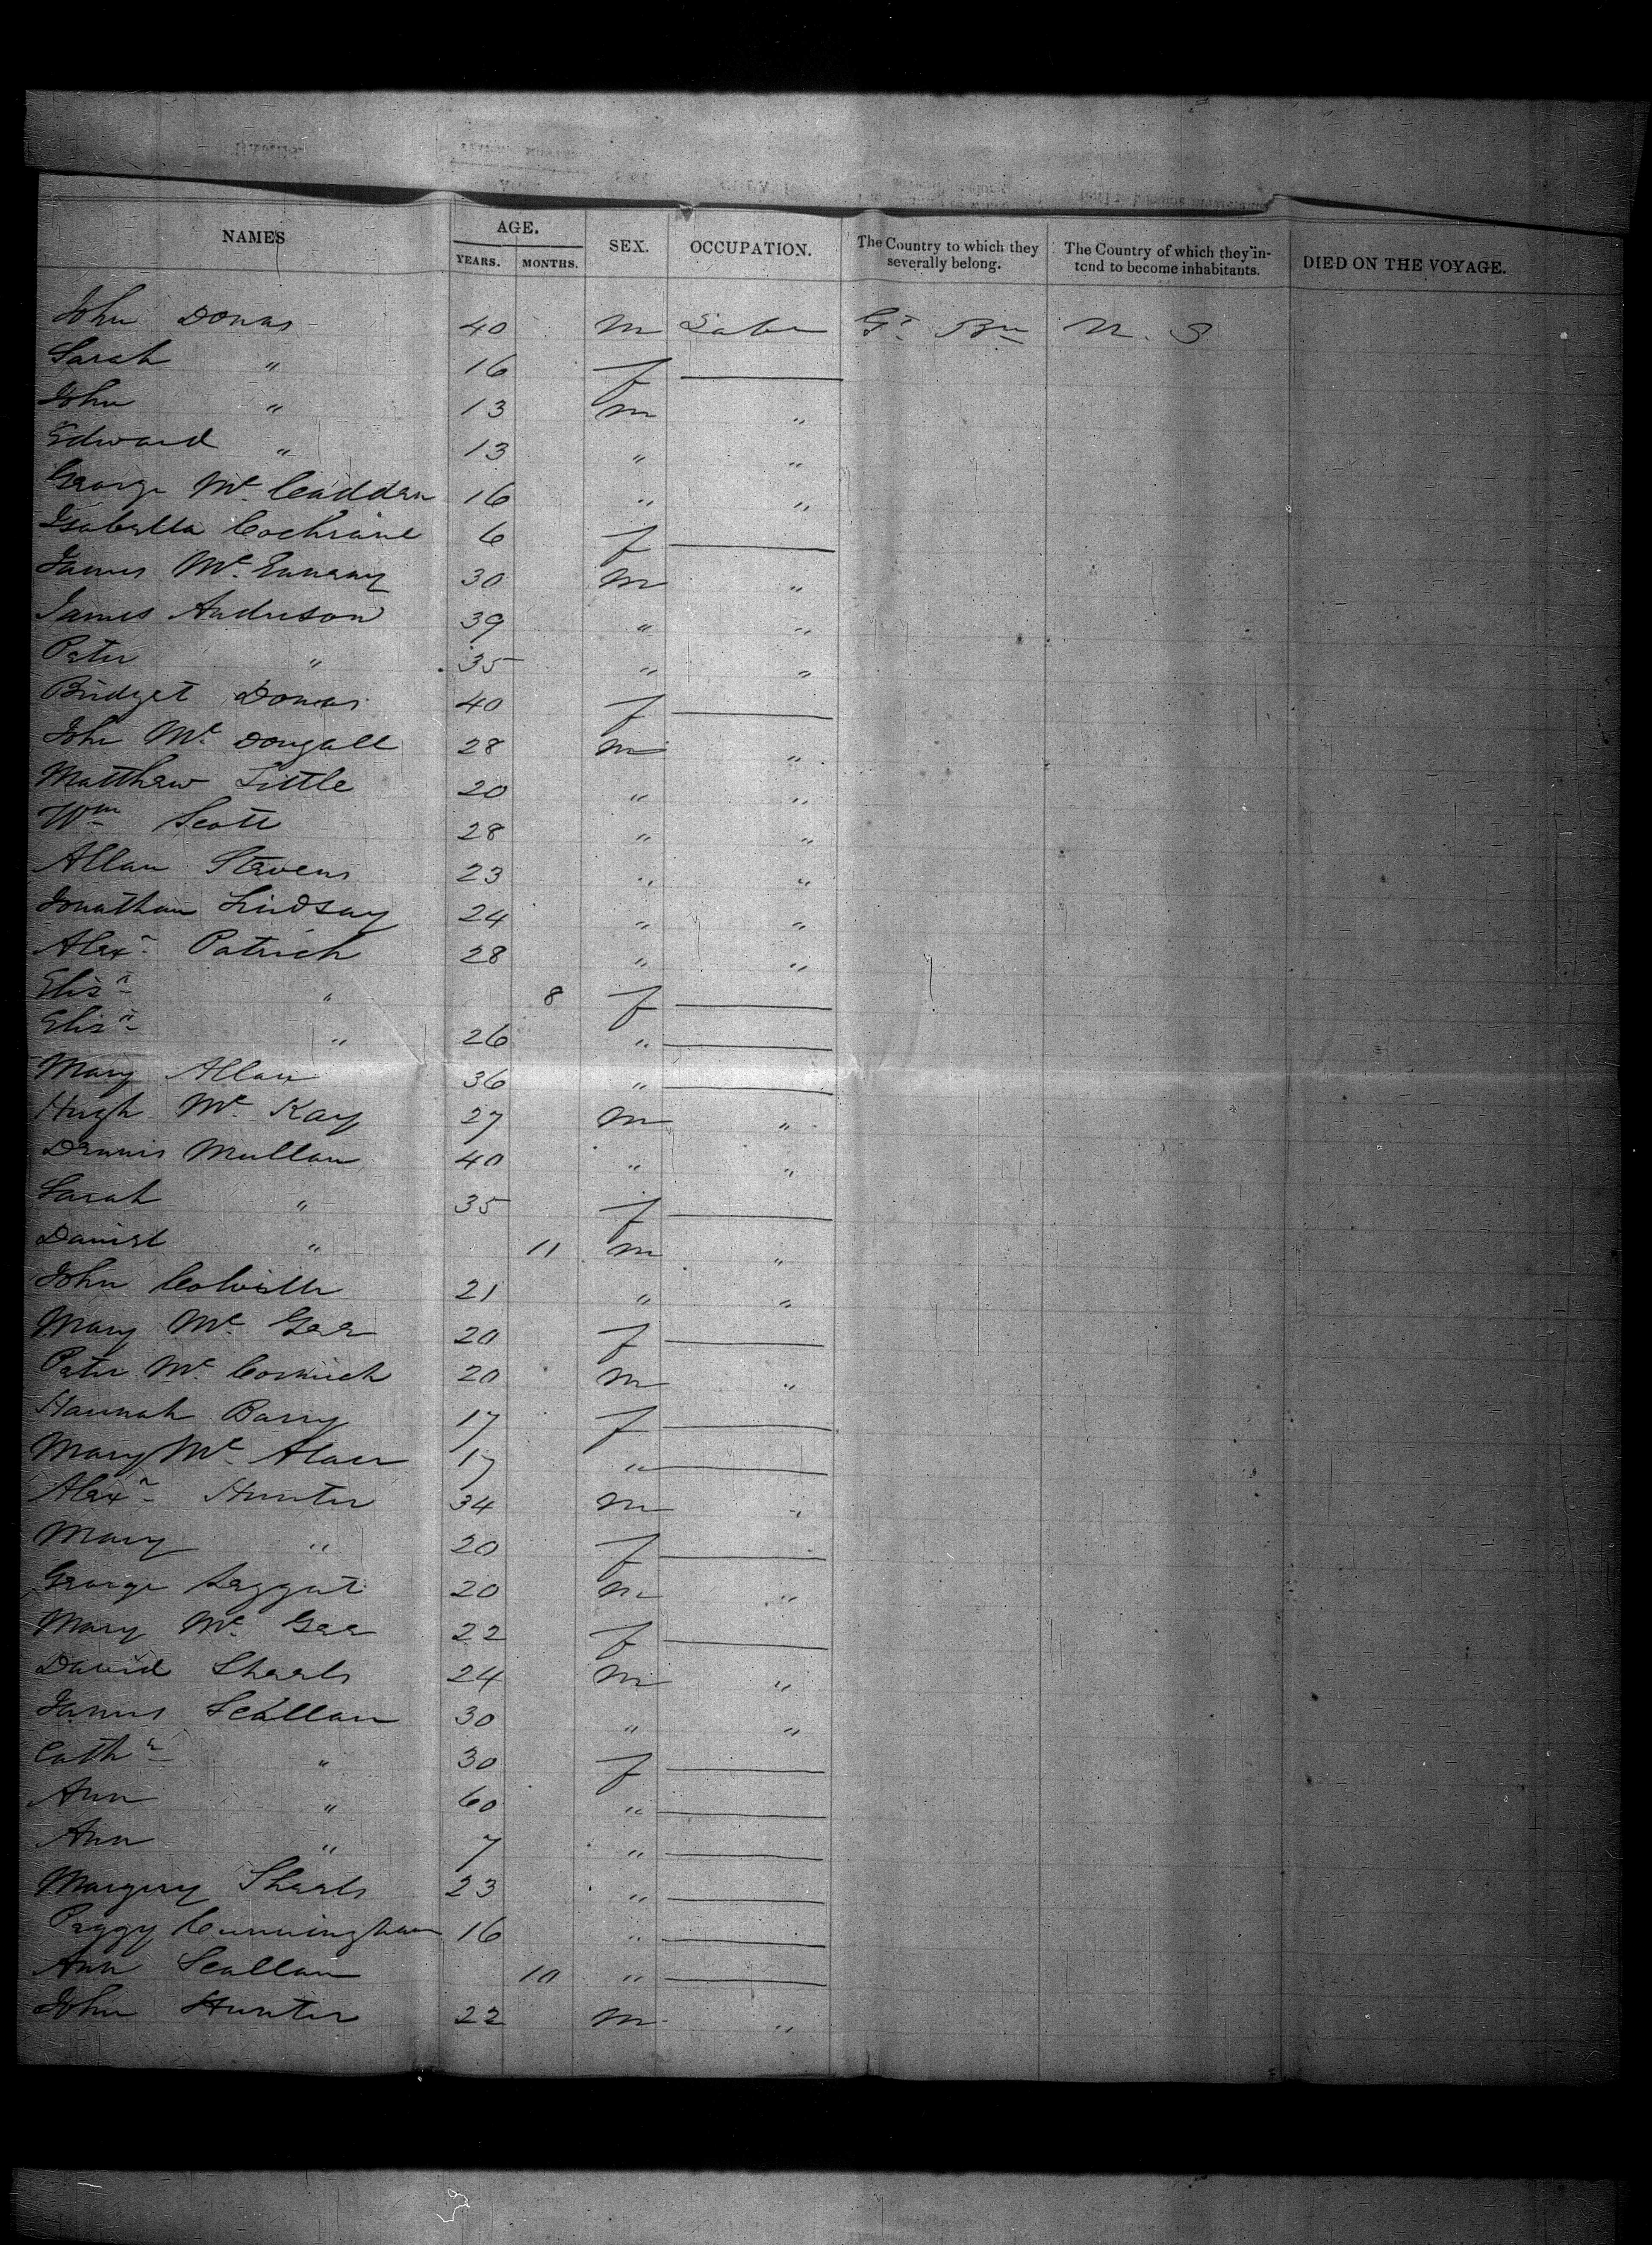 NAMES AGE. SEX. OCCUPATION. The Country to which they severally belong. The Country of which they in-tend to become inhabitants. DIED ON THE VOYAGE.
YEARS. MONTHS.
John Donas 40 m Labr Gt. Bn N. S
Sarah " 16 f
John " 13 m "
Edward " 13 " "
George Mc. Cadden 16 " "
Isabella Cochrane 6 f
James Mc. 30 m "
James Anderson 39 " "
Peter " 35 " "
Bridget Donas 40 f
John Mc. Dougall 28 m "
Matthew Little 20 " "
Wm Scott 28 " "
Allan Stevens 23 " "
Jonathan Lindsay 24 " "
Alexr. Patrick 28 " "
Elizh " 8 f
Elizh " 26 "
Mary Allan 36 "
Hugh Mc. Kay 27 m "
Dennis Mullan 40 " "
Sarah " 35 f
Daniel " 11 m "
John Colville 21 " "
Mary Mc. Gee 20 f
Peter Mc. Cormick 20 m "
Hannah Barry 17 f
Mary Mc. 17 "
Alexr. Hunter 34 m "
Mary " 20 f
George Leggat 20 m "
Mary Mc. Gee 22 f
David Sheals 24 m "
James Scallan 30 " "
Cathe " 30 f
Ann " 60 "
Ann " 7 "
Margery Sheals 23 "
Peggy Cunningham 16 "
Ann Scallan 10 "
John Hunter 22 m "